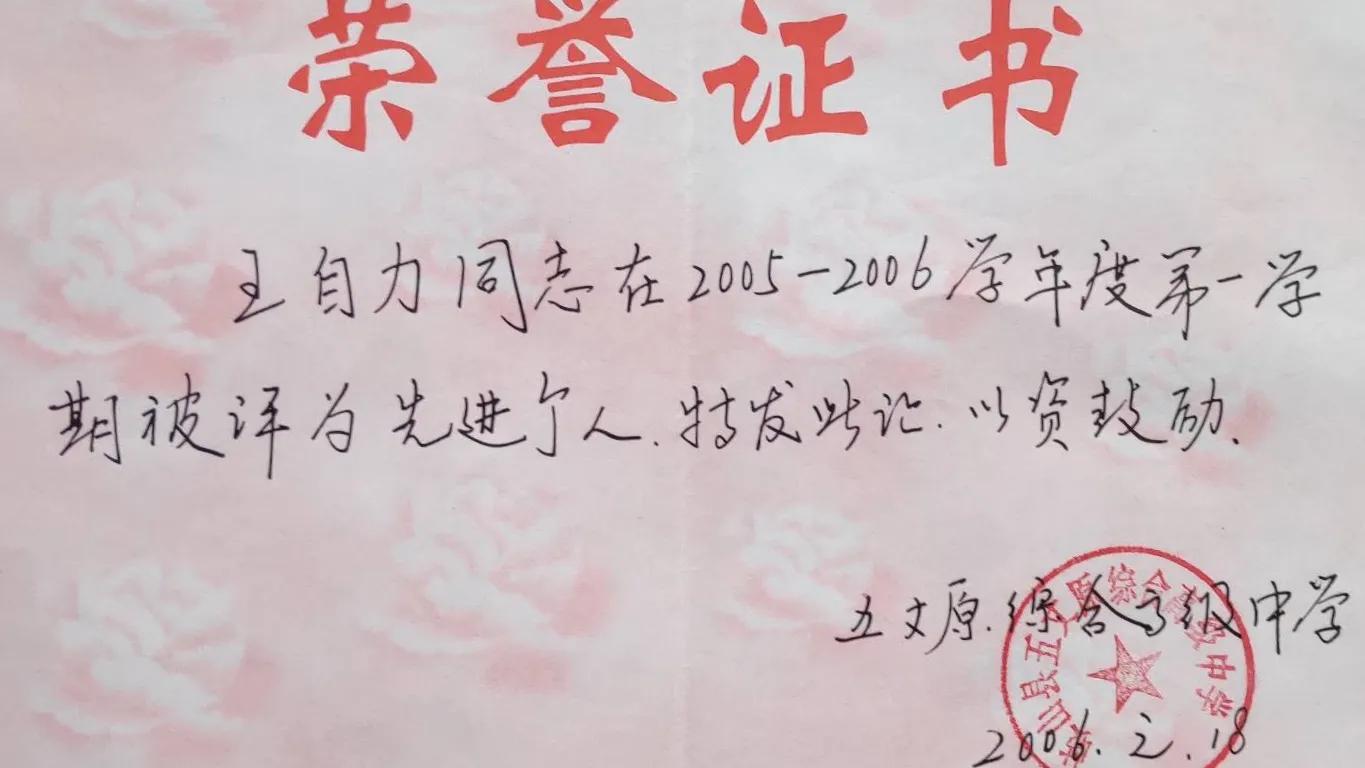 荣誉证书
王自力同志在2005-2006学年度第一学
期被评为先进个人.特发此证.以资鼓励.
五丈原综合高级中学
岐山县五丈原综合高级中学
2006.2.18